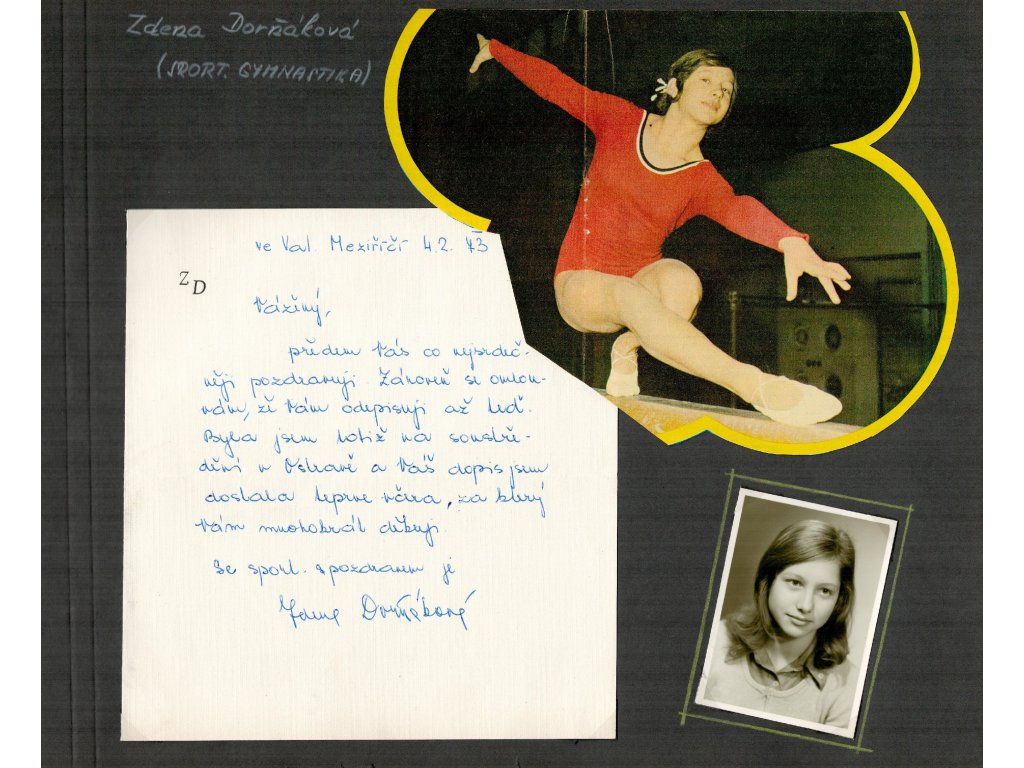 Zdena Dorňáková
(SPORT. GYMNASTIKA)
ve Val. Meziříčí 4.2. 73
ZD
Vážený,
předem Vás co nejsrdeč-
něji pozdravuji. Zároveň se omlou-
vám, že Vám odepisuji až teď.
Byla jsem totiž na soustře-
dění v Ostravě a Váš dopis jsem
dostala teprve včera, za který
Vám mnohokrát děkuji.
Se sport. s pozdravem je
Zdena Dorňáková